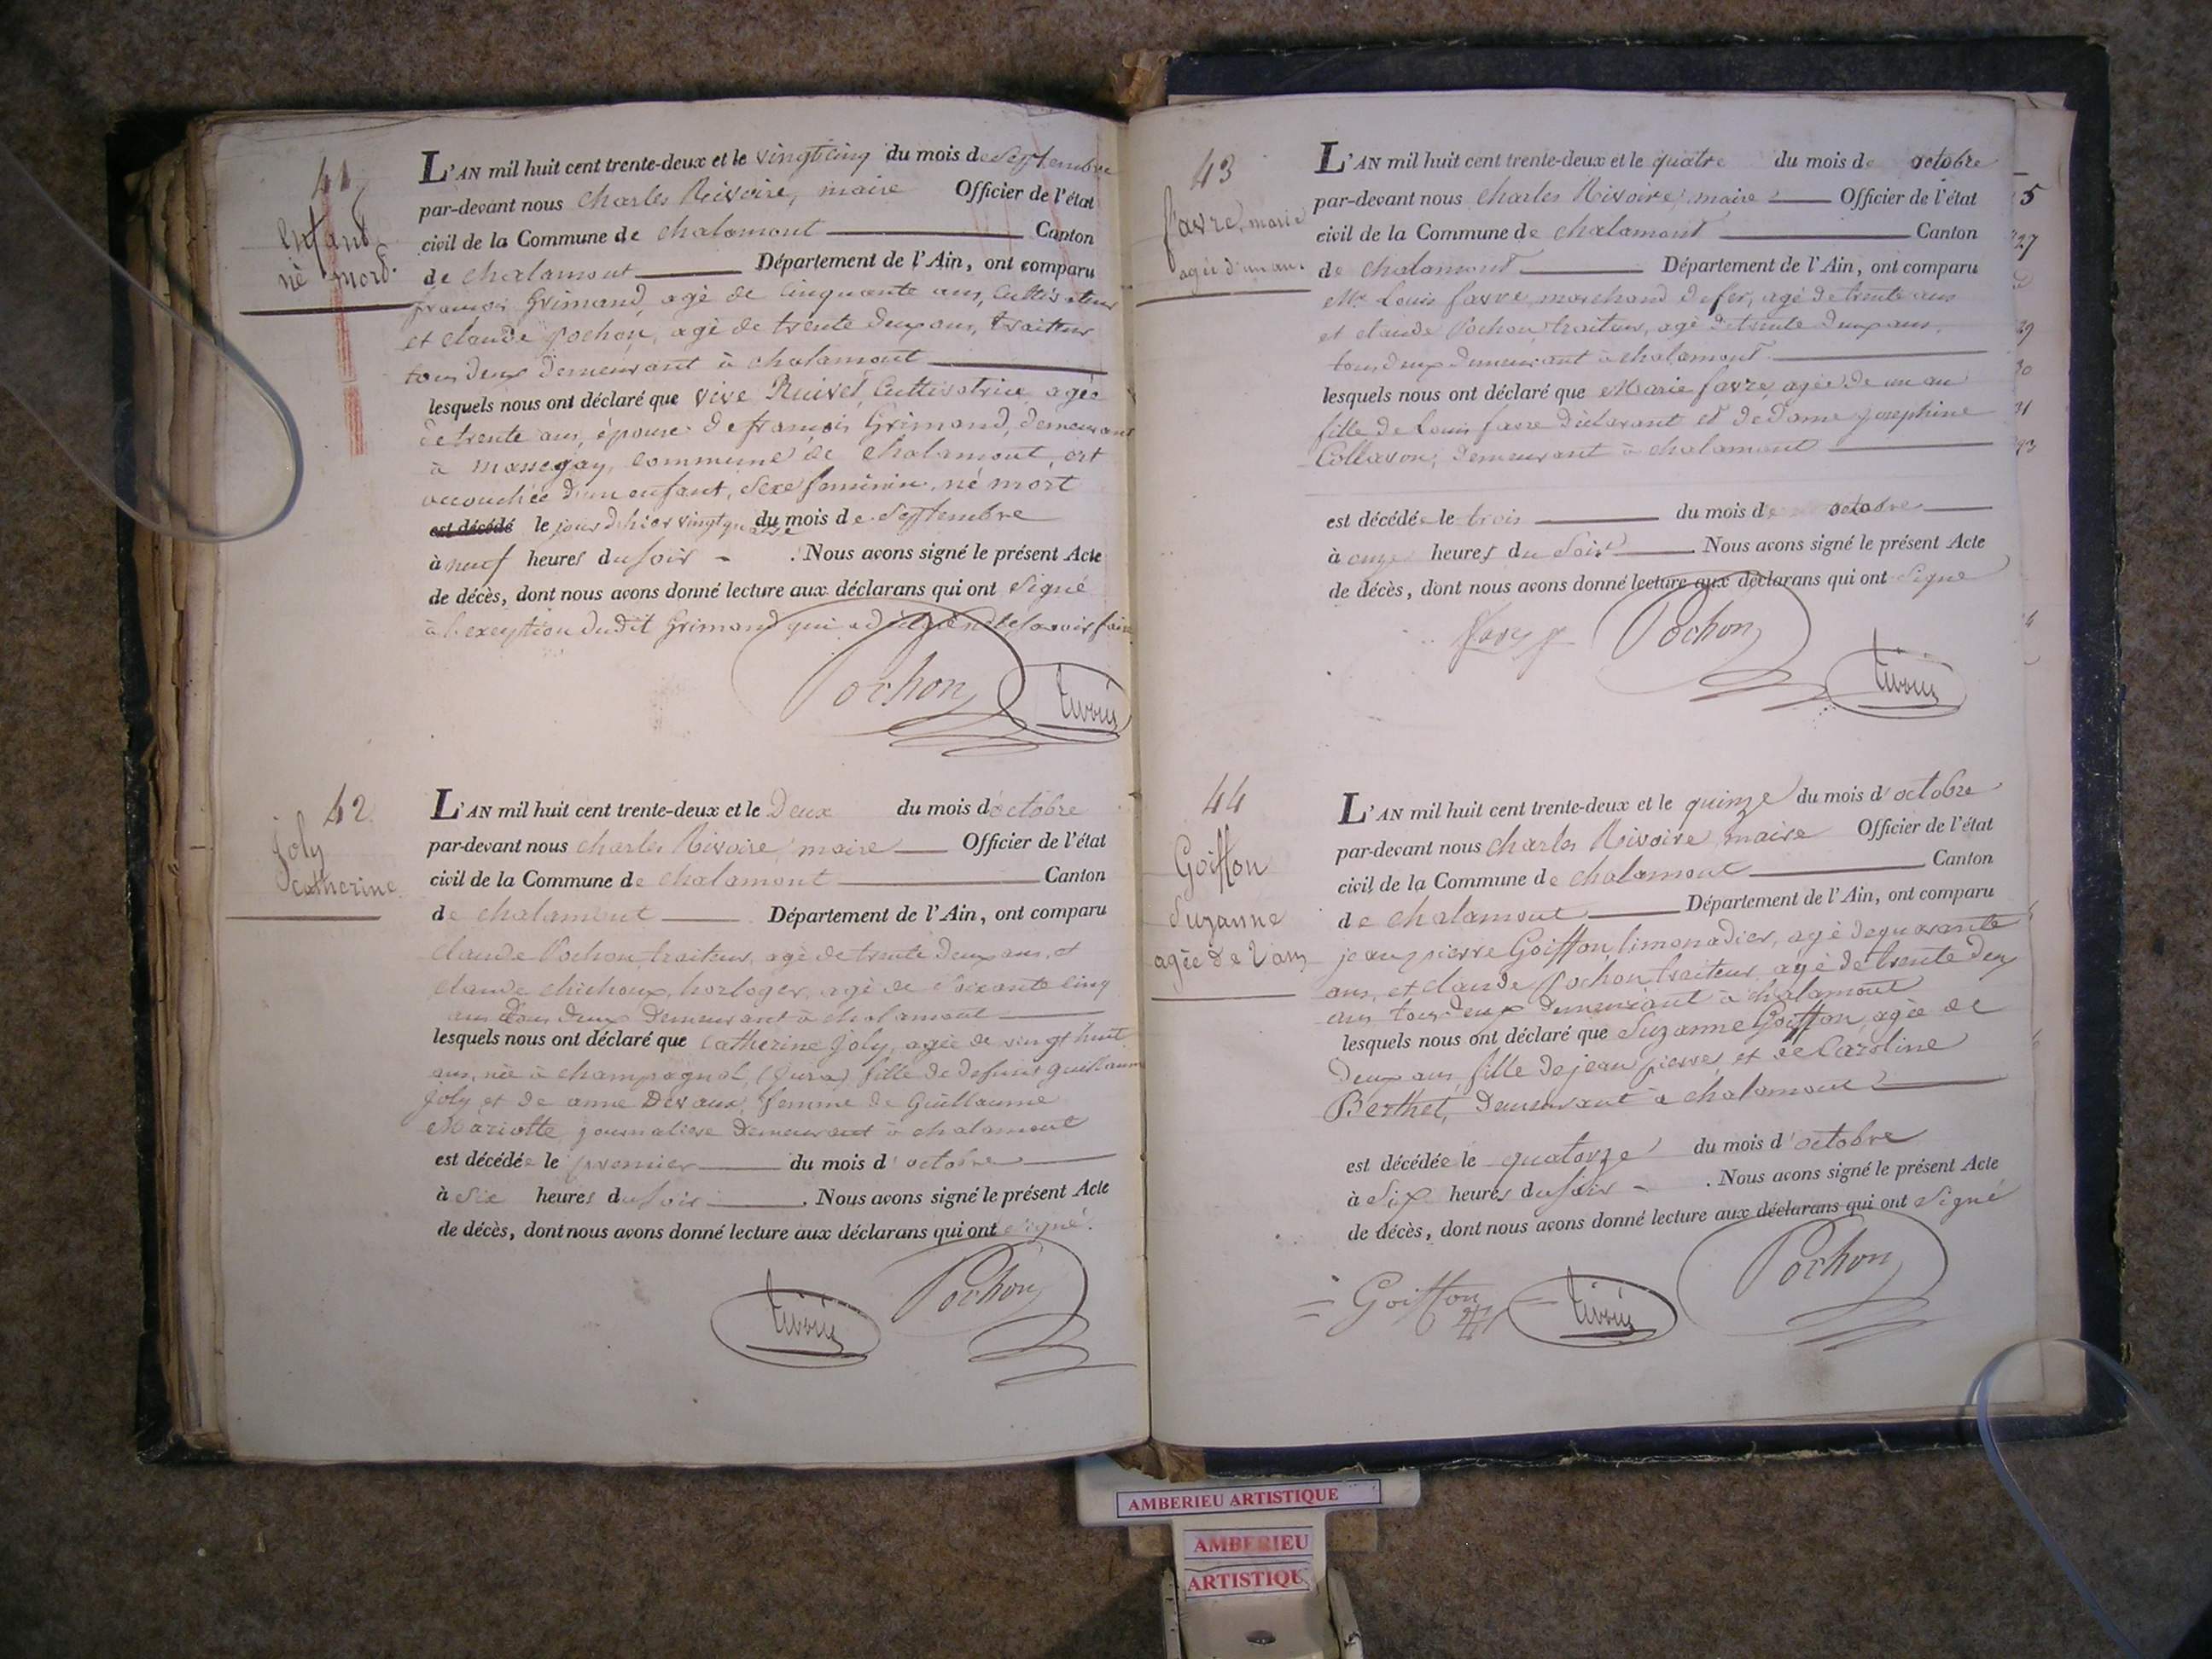 41
enfant
né mort.
L'AN mil huit cent trente-deux et le vingt cinq du mois de Septembre
par-devant nous charles Rivoire, maire Officier de l'état
civil de la Commune de chalamont Canton
de chalamont Département de l'Ain, ont comparu
françois Grimand, agé de Cinquante ans, Cultivateur
et claude Pochon, agé de trente deux ans, traiteur
tous deux demeurant à chalamont
lesquels nous ont déclaré que Vive Ruivet, Cultivatrice, agée
de trente ans, épouse de françois Grimand, demeurant
à Massegay, commune de chalamont, est
accouchée d'un enfant, Sexe feminin, né mort
est décédé le jour d'hier vingt quatre du mois de Septembre
à neuf heures du soir . Nous avons signé le présent Acte
de décès, dont nous avons donné lecture aux déclarans qui ont Signé
à l'exeption dudit Grimand qui a déclaré ne le savoir faire
Pochon
42
joly
catherine
L'AN mil huit cent trente-deux et le Deux du mois d'octobre
par-devant nous charles Rivoire, maire Officier de l'état
civil de la Commune de chalamont Canton
de chalamont Département de l'Ain, ont comparu
claude Pochon, traiteur, agé de trente deux ans, et
claude chichoux, horloger, agé de Soixante cinq
ans tous deux demeurant à chalamont
lesquels nous ont déclaré que Catherine Joly, agée de vingt huit
ans, née à champagnol, (Jura) fille de defunt guillaume
joly et de anne Devaux, femme de Guillaume
Mariotte, journaliere demeurant à chalamont
est décédée le premier du mois d'octobre
à Six heures du soir . Nous avons signé le présent Acte
de décès, dont nous avons donné lecture aux déclarans qui ont signé.
Pochon
43
favre, marie
agée d'un an.
L'AN mil huit cent trente-deux et le quatre du mois de octobre
par-devant nous charles Rivoire, maire Officier de l'état
civil de la Commune de chalamont Canton
de chalamont Département de l'Ain, ont comparu
Mr. Louis favre, marchand de fer, agé de trente ans
et claude Pochon, traiteur, agé de trente deux ans,
tous deux demeurant à chalamont
lesquels nous ont déclaré que Marie favre, agée de un an
fille de Louis favre déclarant et de Dame josephine
Collavon, demeurant à chalamont
est décédée le trois du mois de octobre
à onze heures du Soir . Nous avons signé le présent Acte
de décès, dont nous avons donné lecture aux déclarans qui ont Signé
Pochon
44
Goiffon
Suzanne
agée de 2 ans
L'AN mil huit cent trente-deux et le quinze du mois d'octobre
par-devant nous charles Rivoire, maire Officier de l'état
civil de la Commune de chalamont Canton
de chalamont Département de l'Ain, ont comparu
jean pierre Goiffon, limonadier, agé de quarante
ans, et claude Pochon traiteur, agé de trente deux
ans tous deux demeurant à chalamont
lesquels nous ont déclaré que Suzanne Goiffon, agée de
deux ans, fille de jean pierre, et de Caroline
Berthet, demeurant à chalamont
est décédée le quatorze du mois d'octobre
à Six heures du soir . Nous avons signé le présent Acte
de décès, dont nous avons donné lecture aux déclarans qui ont Signé
Goiffon
Pochon
5
27
29
30
31
AMBERIEU ARTISTIQUE
AMBERIEU
ARTISTIQUE